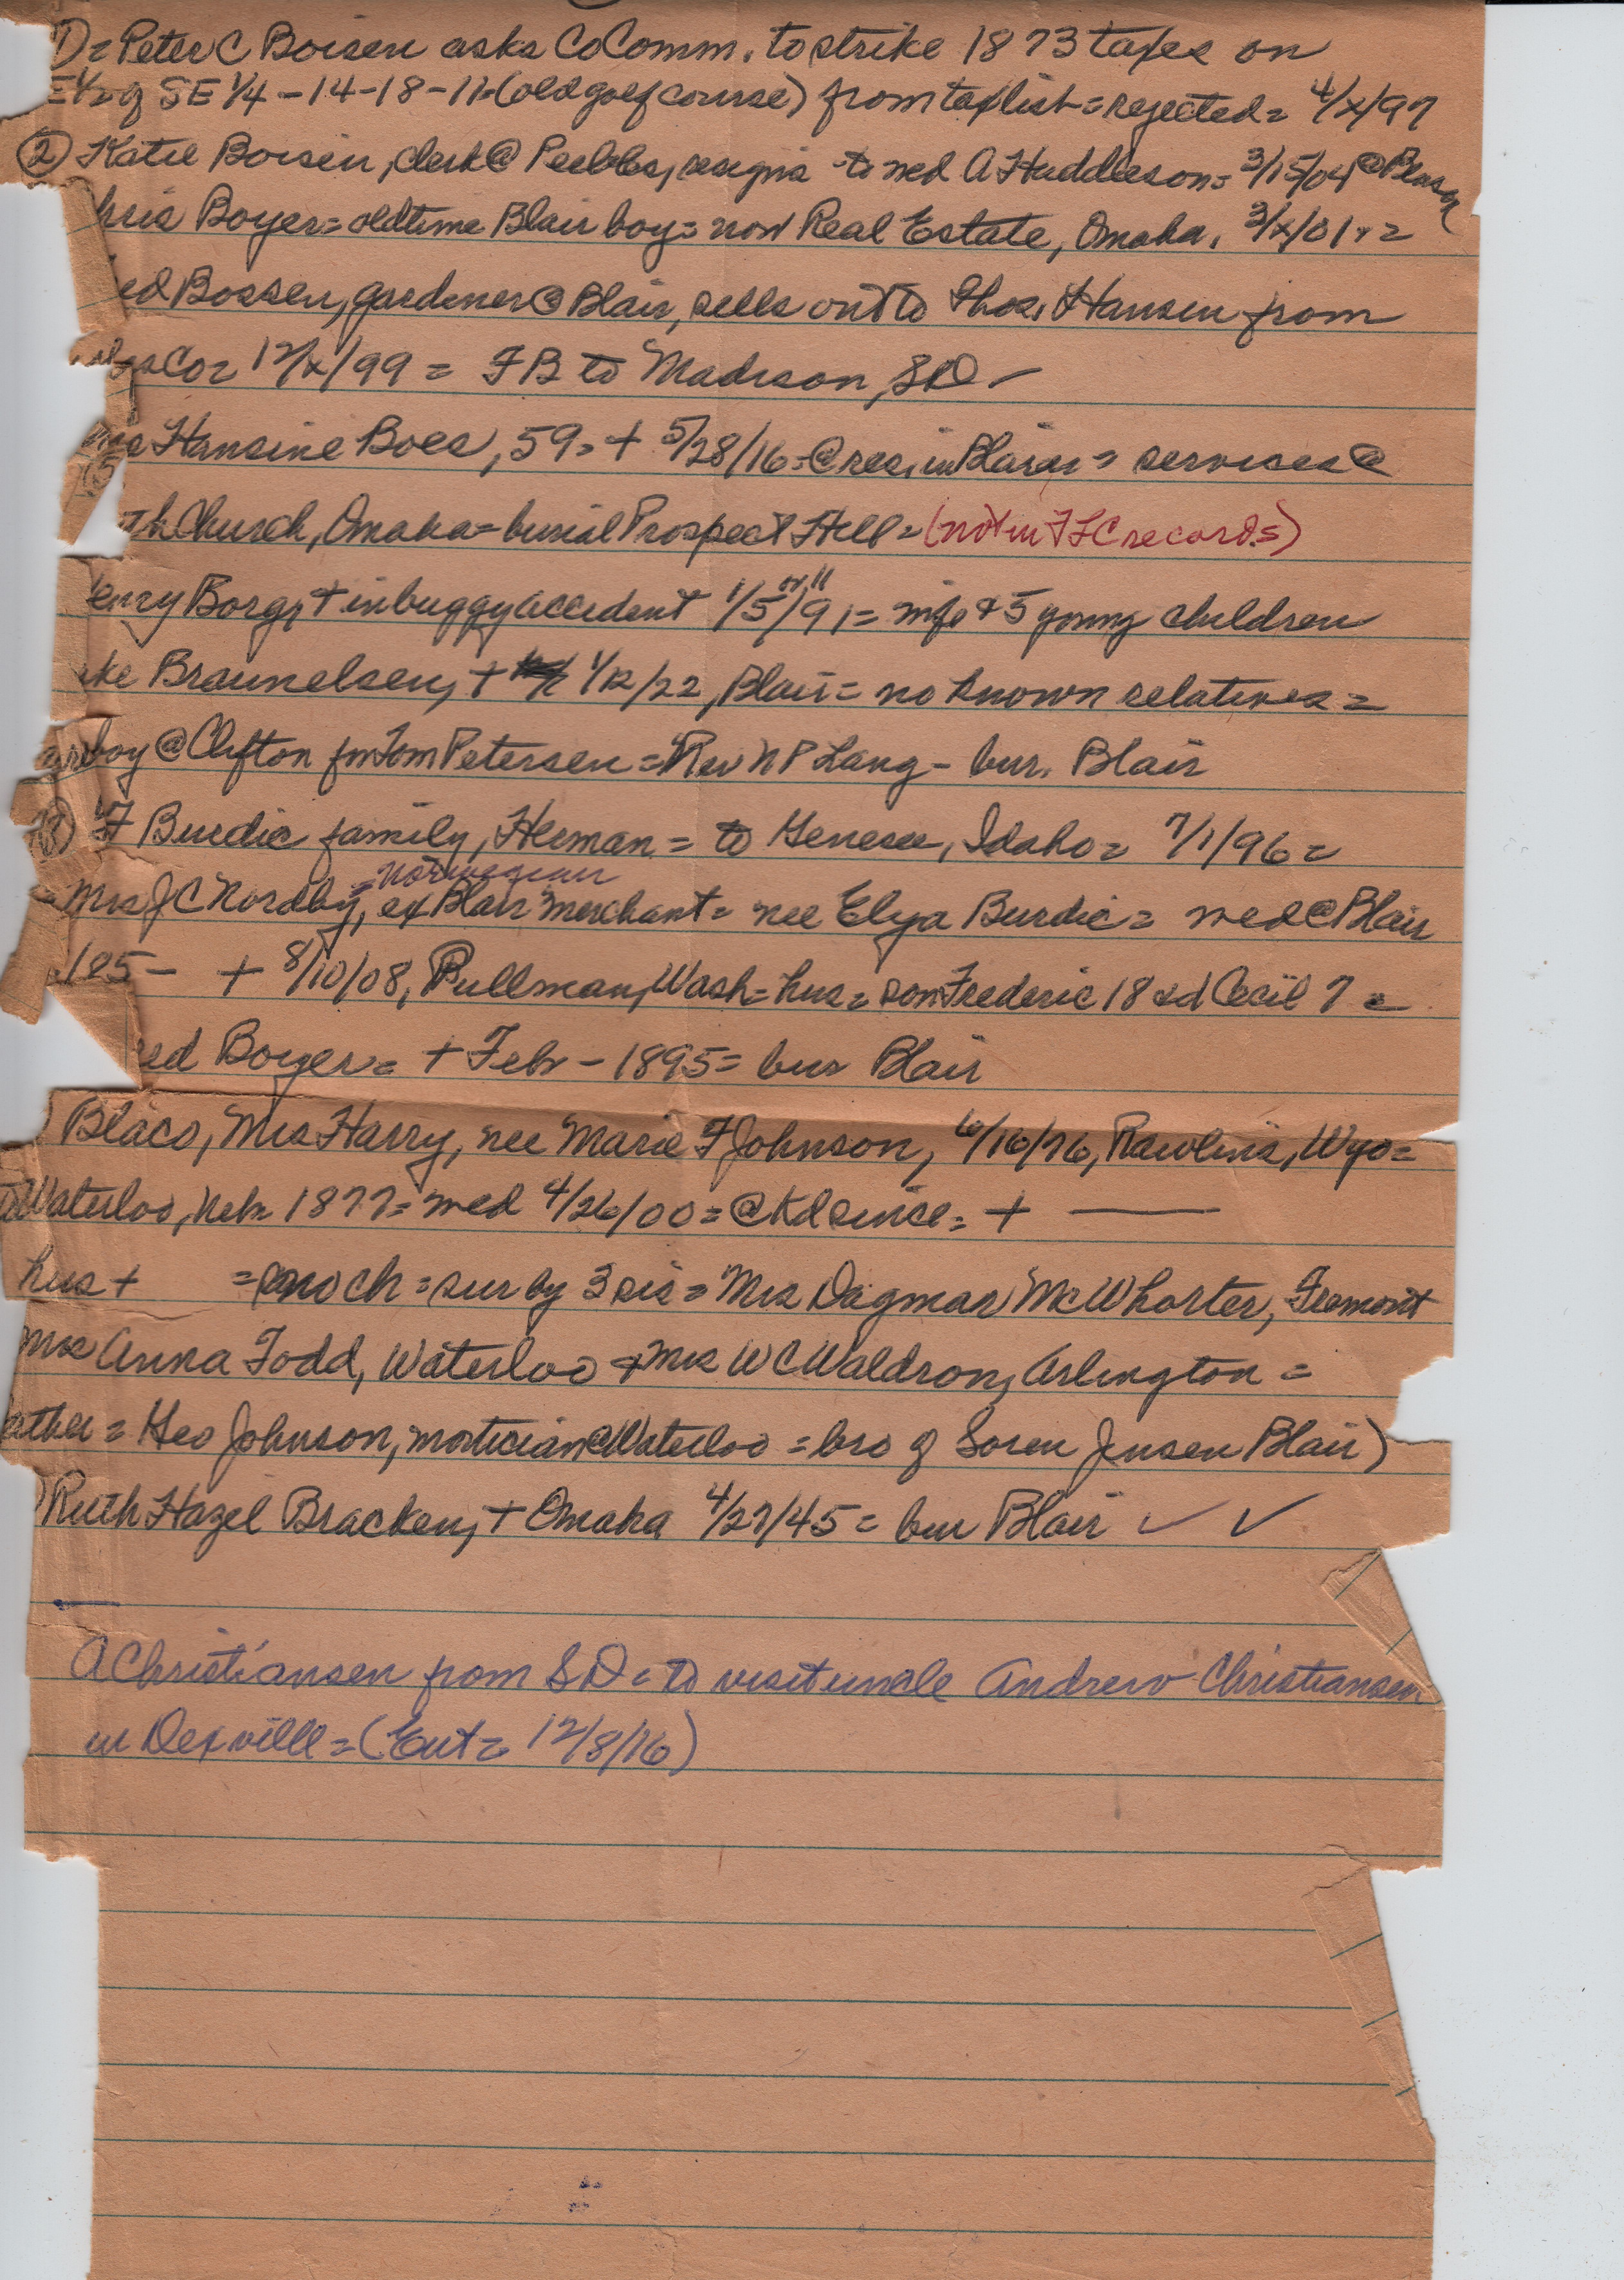 1) = Peter C Boisen asks Co Comm. to strike 1873 taxes on
E½ of SE ¼ - 14-18-11 = (old golf course) from tax list = rejected = 4/x/97
② Katie Boisen, clerk @ Peebles, resigns to wed A Huddleson = 3/15/04 @ Blair
hris Boyer = oldtime Blair boy = now Real Estate, Omaha, 3/x/01 =
ed Bossen, gardener @ Blair, sells out to Thos. Hansen from
Co = 12/x/99 = FB to Madison, SD -
Hansine Boes, 59 = + 5/28/16 = @ res. in Blair = services @
th Church, Omaha = burial Prospect Hill = (not in FLC records)
enry Borg, + in buggy accident 1/5 or 11/91 = wife + 5 young children
ke Braunelsen, + 1/12/22, Blair = no known relatives =
boy @ Clifton fm Tom Petersen = Rev N P Lang - bur. Blair
⑧ F Burdic family, Herman = to Genesee, Idaho = 7/1/96 =
= Norwegian
= Mrs J C Nordby, ex Blair merchant = nee Elya Burdic = wed @ Blair
/85 - + 8/10/08, Pullman, Wash = hus = son Frederic 18 & d Cecil 7 =
ed Boyer = + Feb - 1895 = bur Blair
Blaco, Mrs Harry, nee Marie F Johnson, 6/16/76, Rawlins, Wyo =
Waterloo, Nebr 1877 = wed 4/26/00 = @ Kd since = + ——
hus + = no ch = sur by 3 sis = Mrs Dagmar McWhorter, Fremont
Mrs Anna Todd, Waterloo + Mrs W C Waldron, Arlington =
ather = Geo Johnson, mortician @ Waterloo = bro of Soren Jensen Blair)
) Ruth Hazel Bracken, + Omaha 4/27/45 = bur Blair ✓ ✓
A Christiansen from SD = to visit uncle Andrew Christiansen
in Dexville = (Ent = 12/8/76)